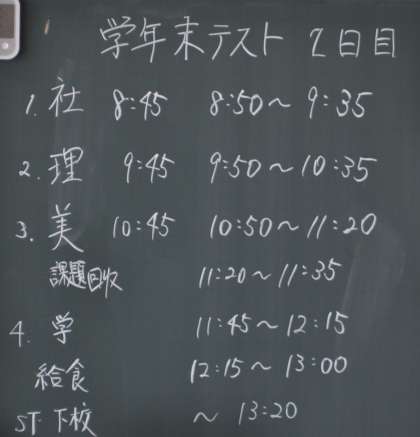 学年末テスト 2日目
1. 社 8:45 8:50～ 9:35
2. 理 9:45 9:50～10:35
3. 美 10:45 10:50～11:20
課題回収 11:20～11:35
4. 学 11:45～12:15
給食 12:15～13:00
ST. 下校 ～ 13:20